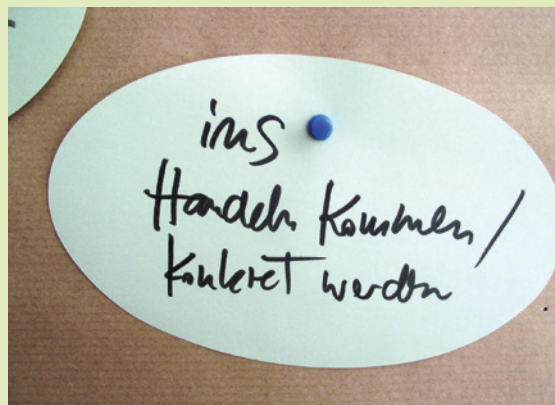 ins
Handeln Kommen/
Konkret werden